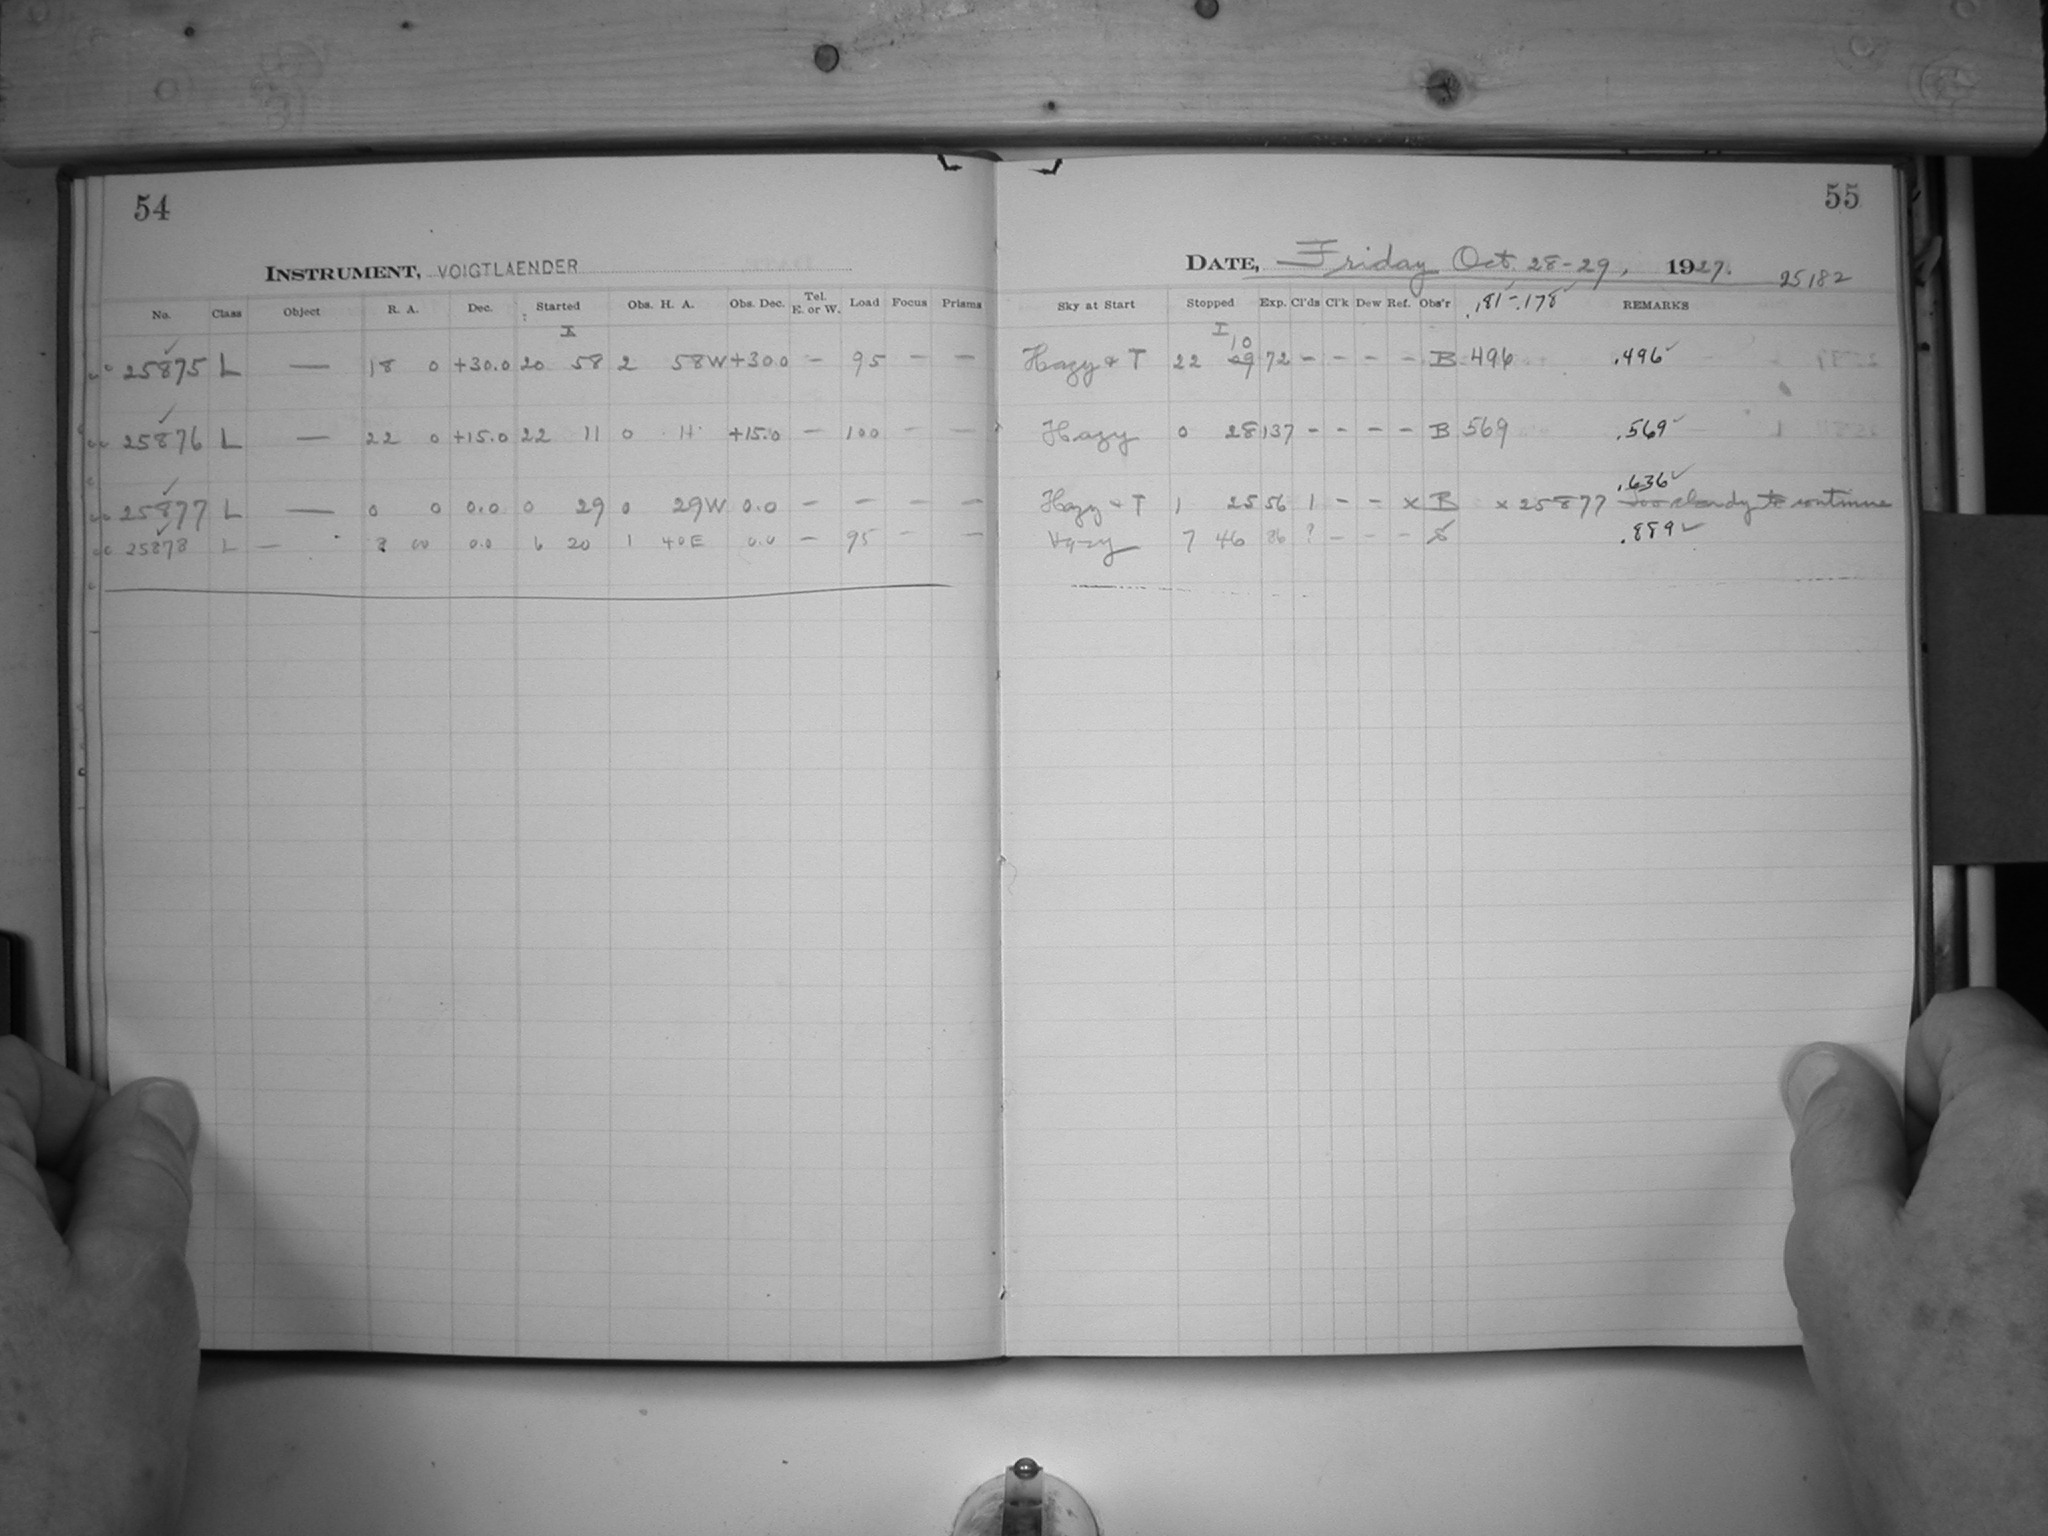 54
INSTRUMENT, VOIGTLAENDER
No. Class Object R. A. Dec. Started Obs. H. A. Obs. Dec. Tel. E. or W. Load Focus Prisms
25875 L — 18 0 +30.0 20 58 2 58W +30.0 — 95 — —
25876 L — 22 0 +15.0 22 11 0 11 +15.0 — 100 — —
25877 L — 0 0 0.0 0 29 0 29W 0.0 — — — —
25878 L — 8 00 0.0 6 20 1 40E 0.0 — 95 — —
55
DATE, Friday Oct. 28-29, 1927. 25182
Sky at Start Stopped Exp. Cl'ds Cl'k Dew Ref. Obs'r .81-.178 REMARKS
10
Hazy & T 22 29 72 - - - - B 496 .496
Hazy 0 28 137 - - - - B 569 .569
.636
Hazy & T 1 25 56 1 - - x B x 25877 too cloudy to continue
Hazy 7 46 86 ? - - - .889